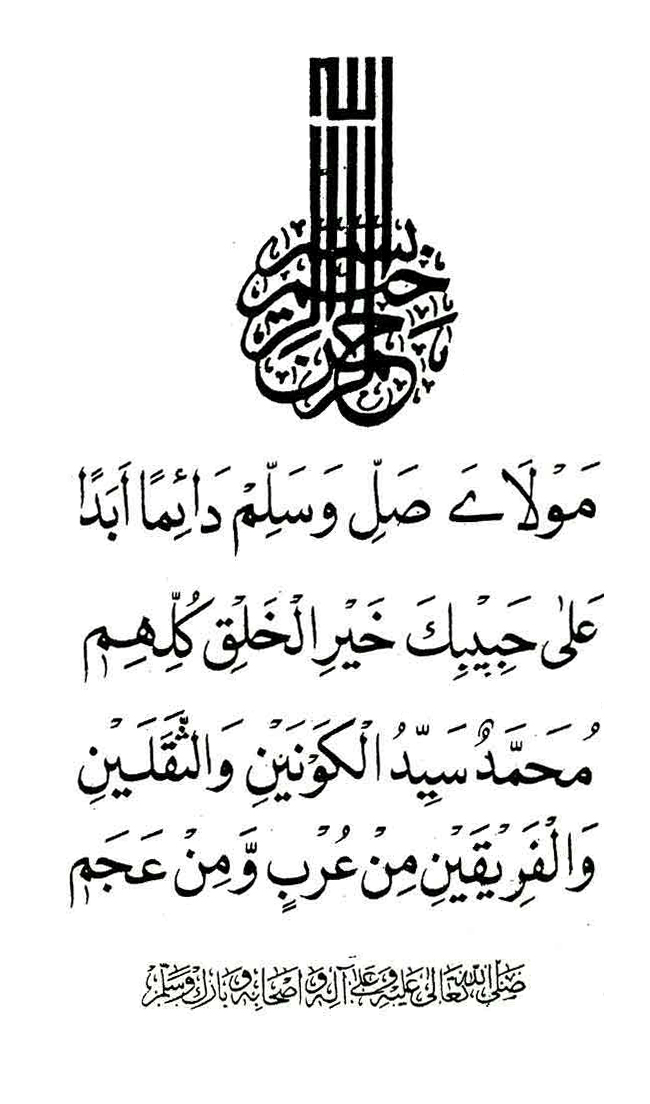 بسم الله الرحمن الرحيم
مَوْلَايَ صَلِّ وَسَلِّمْ دَائِمًا أَبَدًا
عَلٰى حَبِيْبِكَ خَيْرِ الْخَلْقِ كُلِّهِمِ
مُحَمَّدٌ سَيِّدُ الْكَوْنَيْنِ وَالثَّقَلَيْنِ
وَالْفَرِيْقَيْنِ مِنْ عُرْبٍ وَّمِنْ عَجَمِ
صَلَّى اللّٰهُ تَعَالٰى عَلَيْهِ وَعَلٰى آلِهٖ وَاَصْحَابِهٖ وَبَارَكَ وَسَلَّمَ